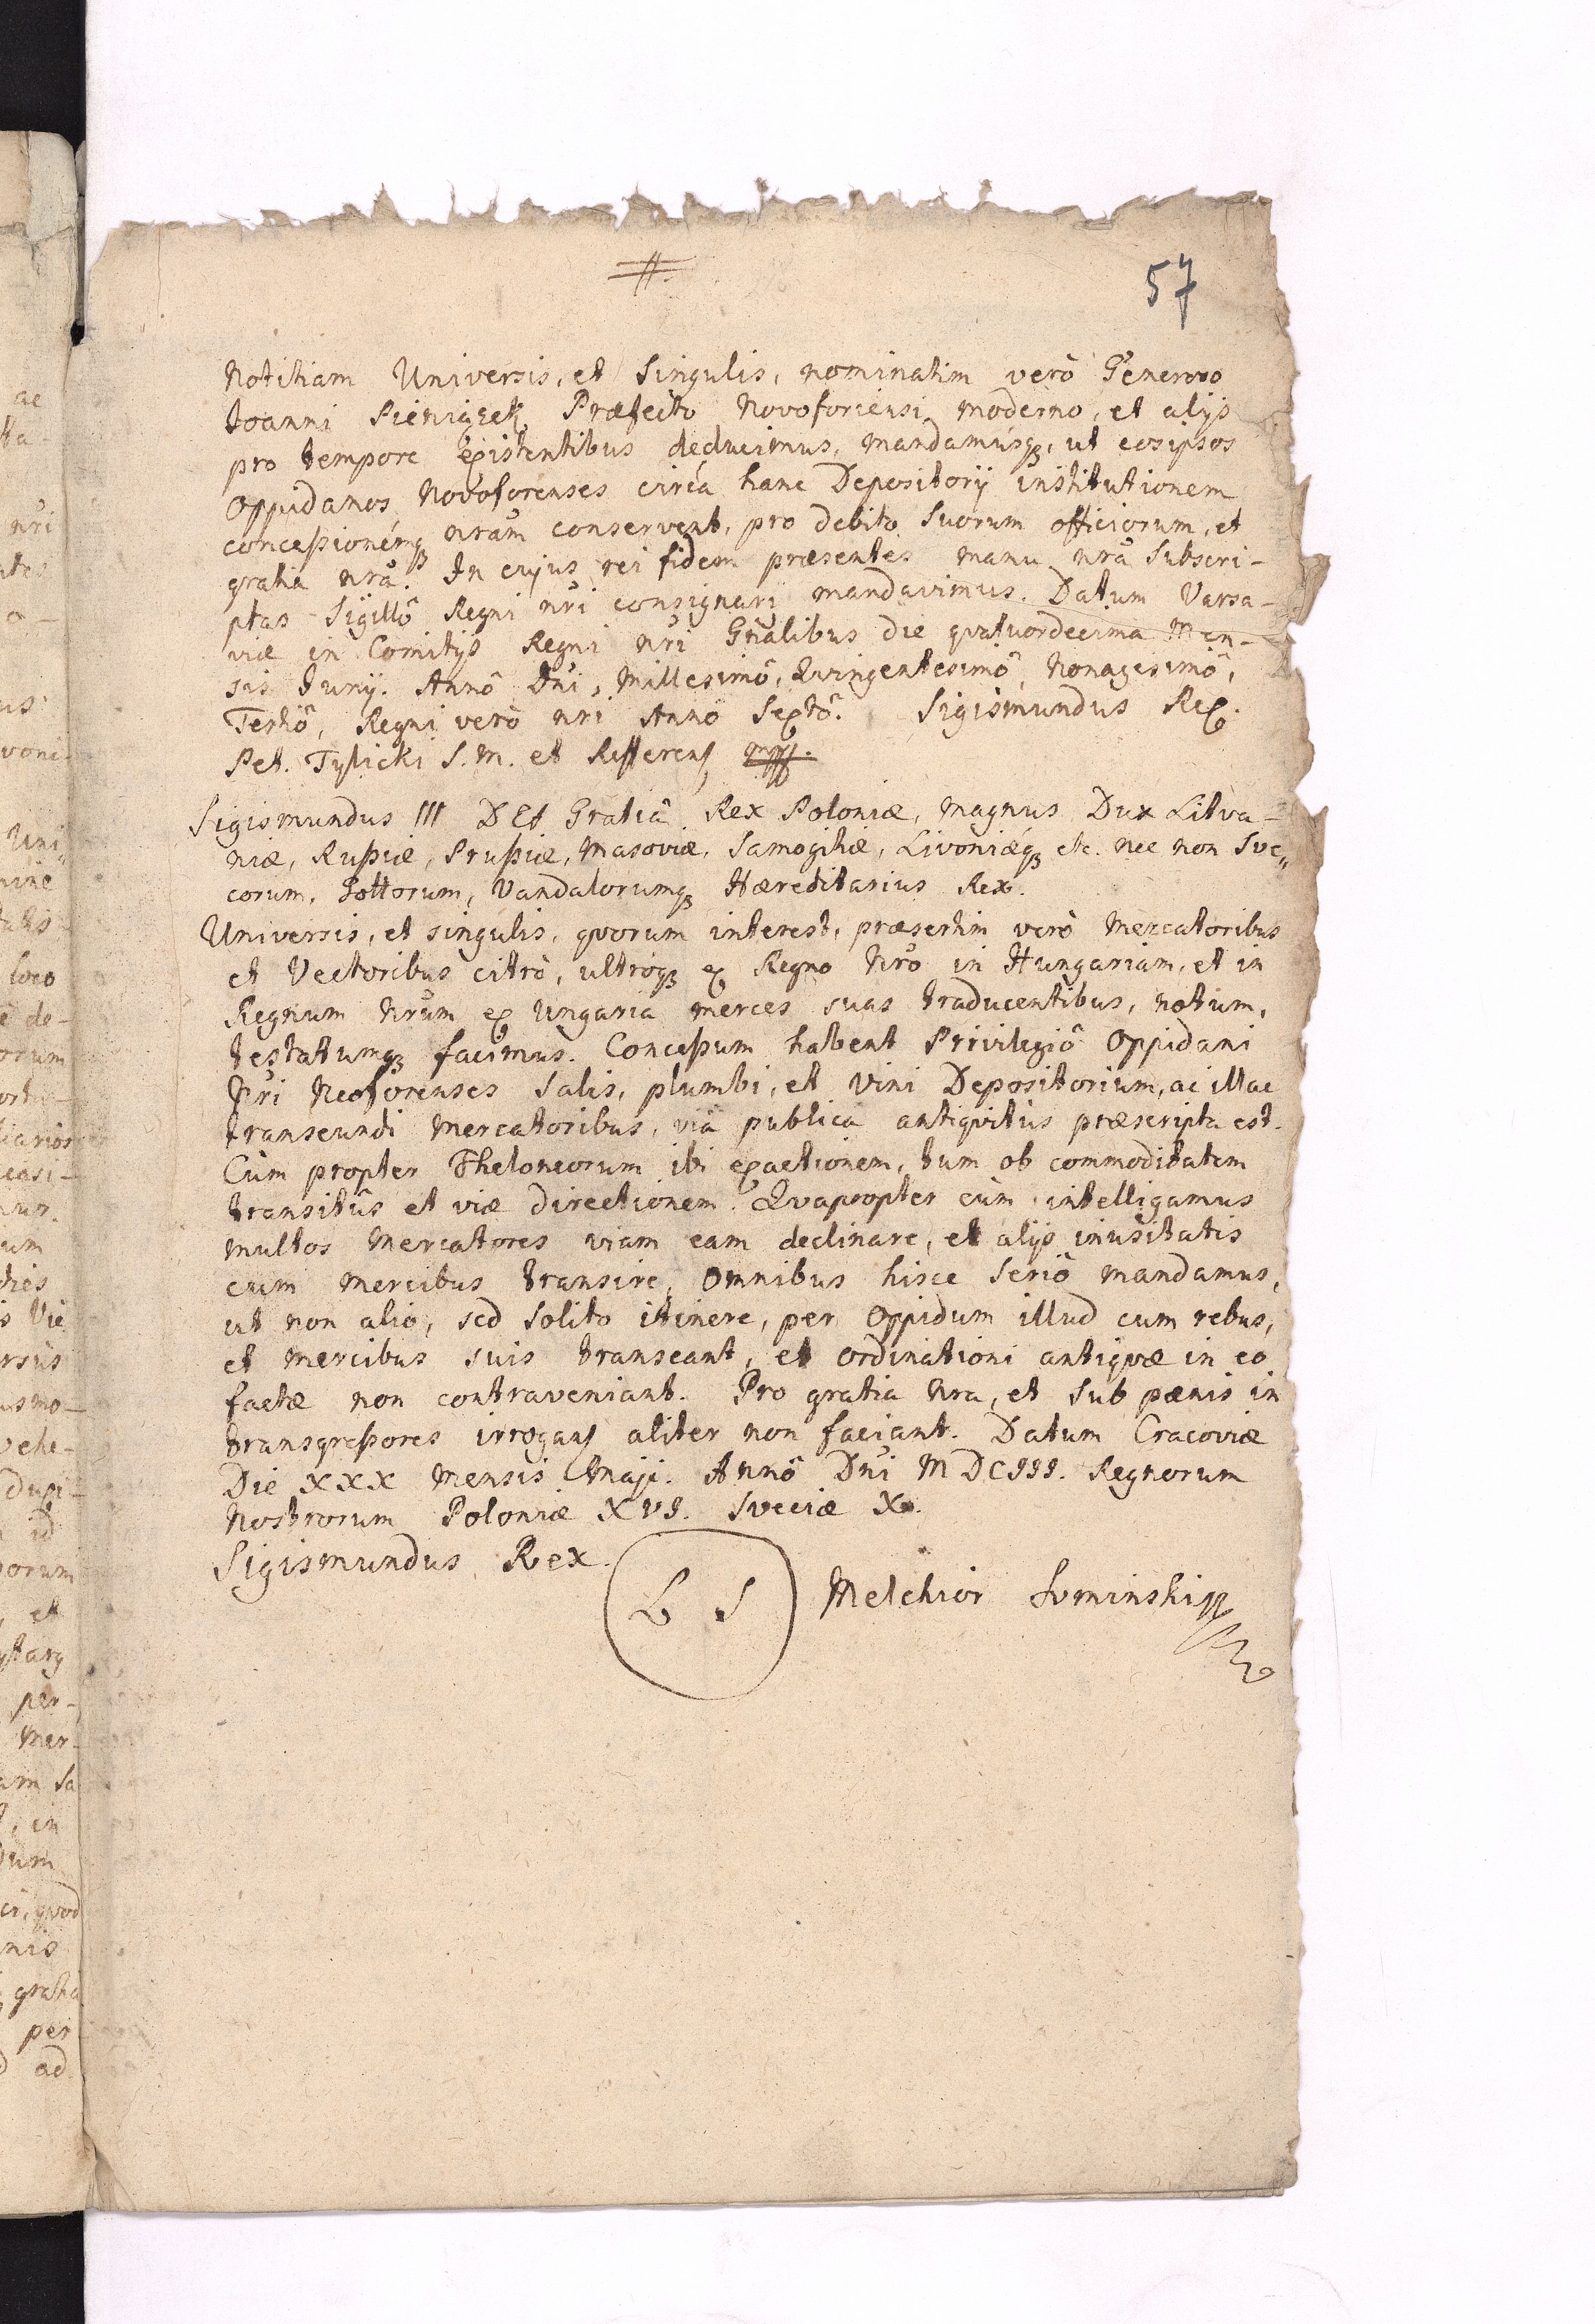 57
Notitiam Universis, et Singulis, nominatim verò Generoso
Joanni Pieniążek Præfecto Novoforiensi moderno, et alijs
pro tempore existentibus deducimus, mandamúsq́ꝫ, ut eosipsos
Oppidanos Novoforenses circa hanc Depositorij institutionem
concessionémqꝫ nram̃ conservent, pro debito Suorum officiorum, et
gratia nrã. In cujus rei fidem præsentes manu nrã Subscri-
ptas Sigillô Regni nri consignari mandavimus. Datum Varsa-
viæ in Comitijs Regni nri Gñalibus die qvatuordecima Men-
sis Junij. Annô Dni, Millesimô, Qvingentesimô, Nonagesimô,
Tertiô, Regni verò nri Anno Sextô. Sigismundus Rex.
Pet. Tylicki S. M. et Refferens mpp.
Sigismundus III DEI Gratiâ Rex Poloniæ, Magnus Dux Litva-
niæ, Russiæ, Prussiæ, Masoviæ, Samogitiæ, Livoniæqꝫ etc. nec non Sve„
corum, Gottorum, Vandalorumqꝫ Hæreditarius Rex.
Universis, et singulis, qvorum interest, præsertim verò Mercatoribus
et Vectoribus citrò, ultroqꝫ ex Regno Nrõ in Hungariam, et in
Regnum Nrũm ex Ungaria merces suas traducentibus, notum,
testatumqꝫ facimus. Concessum habent Privilegiô Oppidani
Nri Neoforenses Salis, plumbi, et Vini Depositorium, ac illac
transeundi Mercatoribus, viâ publica antiqvitùs præscripta est.
Cùm propter Theloneorum ibi exactionem, tum ob commoditatem
transitûs et viæ directionem. Qvapropter cùm intelligamus
multos Mercatores viam eam declinare, et alijs inusitatis
cum mercibus transire, Omnibus hisce Seriò mandamus,
ut non aliò, sed Solito itinere, per Oppidum illud cum rebus,
et mercibus suis transeant, et Ordinationi antiqvæ in eo
factæ non contraveniant. Pro gratia Nra, et Sub pænis in
transgressores irrogans aliter non faciant. Datum Cracoviæ
Die XXX Mensis Maji. Annô Dni MDCIII. Regnorum
Nostrorum Poloniæ XVI. Sveciæ X.
Sigismundus Rex.
L S
Melchior Suminski